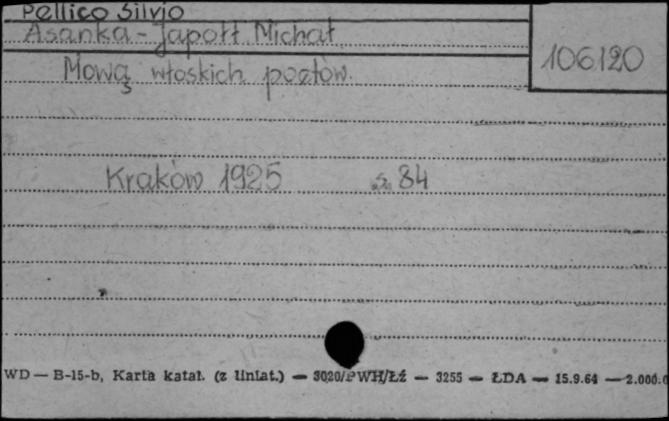 Pellico Silvio
Asanka-Japołł Michał
106120
Mową włoskich poetów.
Kraków 1925 s. 84
WD — B-15-b, Karta katal. (z liniat.) — 3020/PWH/Łź — 3255 — ŁDA — 15.9.64 — 2.000.0